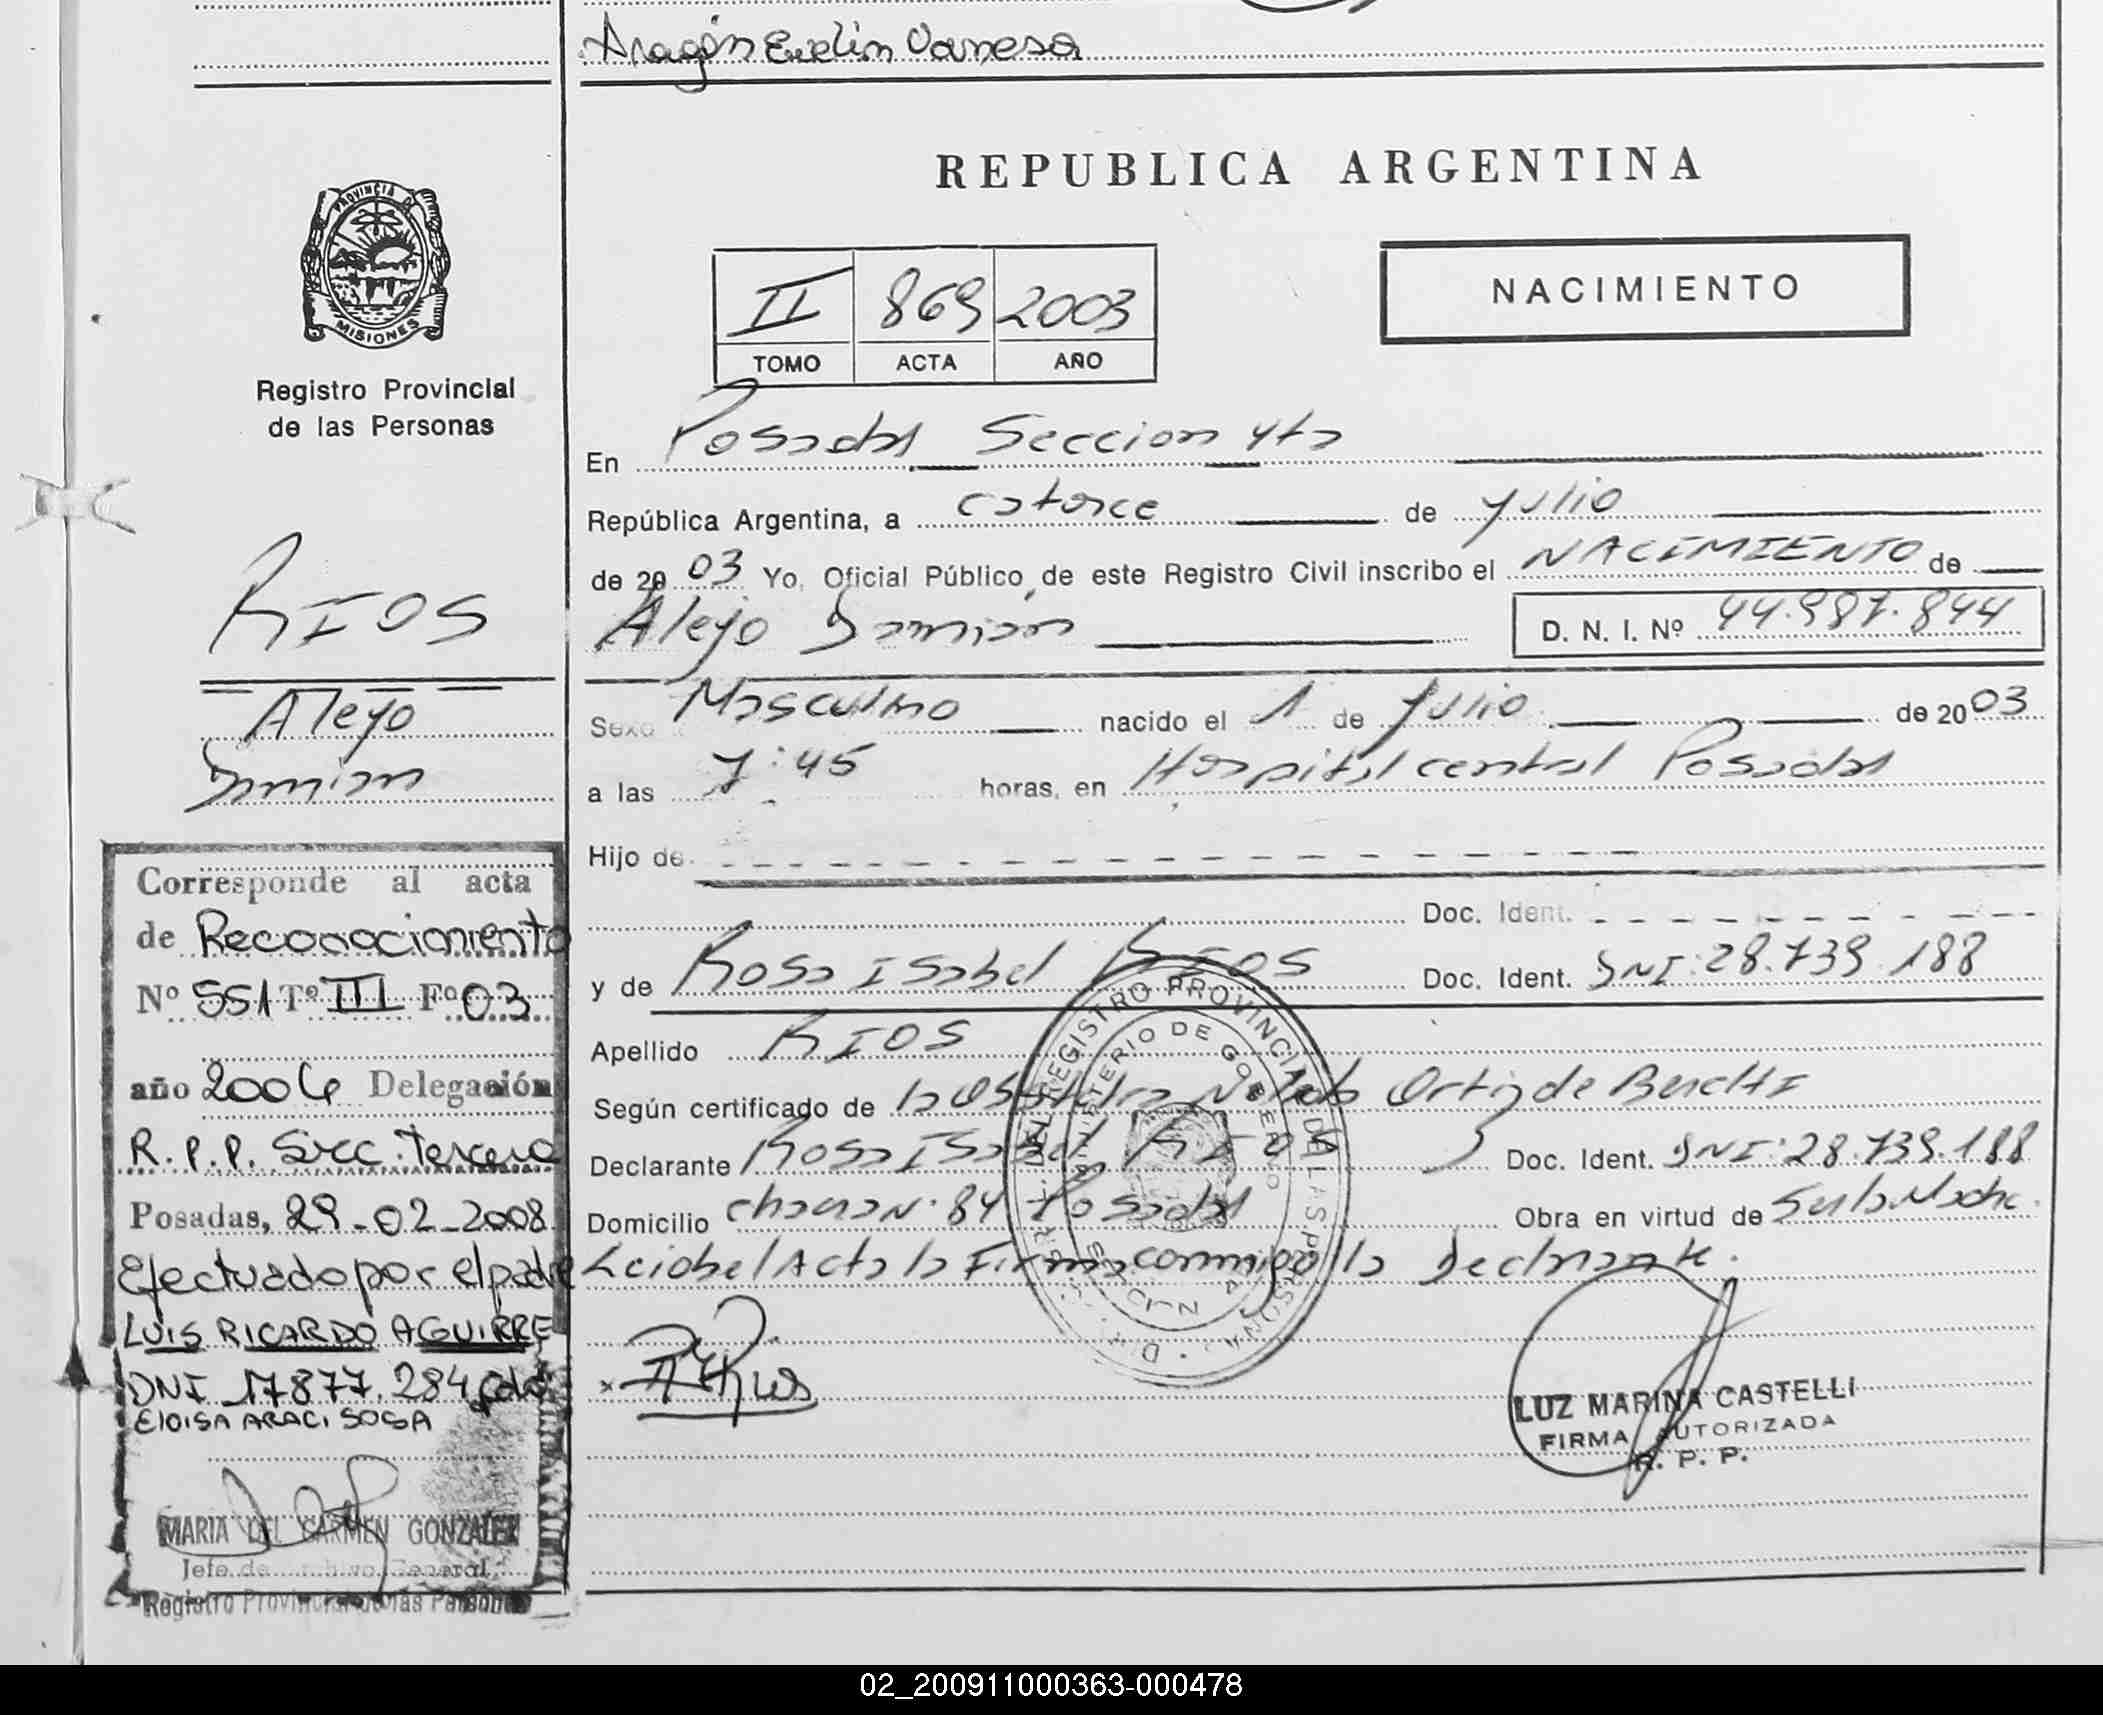 Aragón Evelin Vanesa
REPUBLICA ARGENTINA
PROVINCIA DE
MISIONES
Registro Provincial
de las Personas
II 869 2003
TOMO ACTA AÑO
NACIMIENTO
En Posadas Seccion 4ta
República Argentina, a catorce de julio
de 20 03 Yo, Oficial Público de este Registro Civil inscribo el NACIMIENTO de
Alejo Damian D. N. I. Nº 44.987.844
Sexo Masculino nacido el 1 de Julio de 20 03
a las 7:45 horas, en Hospital central Posadas
Hijo de
Doc. Ident.
y de Rosa Isabel RIOS Doc. Ident. DNI: 28.739.188
Apellido RIOS
Según certificado de la Obstetra Ortiz de
Declarante Rosa Isabel RIOS Doc. Ident. DNI: 28.739.188
Domicilio N. 84 Posadas Obra en virtud de Ser la Madre.
Leida el Acta la Firma conmigo la Declarante.
LUZ MARINA CASTELLI
FIRMA AUTORIZADA
R. P. P.
RIOS
Alejo
Damian
Corresponde al acta
de Reconocimiento
Nº 551 Tº III Fº 03
año 2006 Delegación
R.P.P. Secc. Tercera
Posadas, 29-02-2008
Efectuado por el padre
LUIS RICARDO AGUIRRE
DNI 17877.284
ELOISA ARACI SOSA
MARIA DEL CARMEN GONZALEZ
Jefe de Archivo General
Registro Provincial de las Personas
02_200911000363-000478